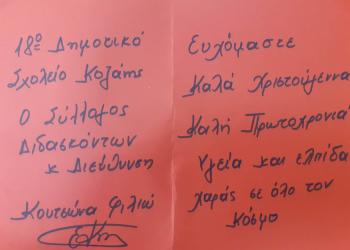 18ο Δημοτικό
Σχολείο Κοζάνης
Ο Σύλλογος
Διδασκόντων
κ Διεύθυνση
Κουτσώνα Φιλιώ
Ευχόμαστε
Καλά Χριστούγεννα
Καλή Πρωτοχρονιά
Υγεία και ελπίδα
χαράς σε όλο τον
κόσμο